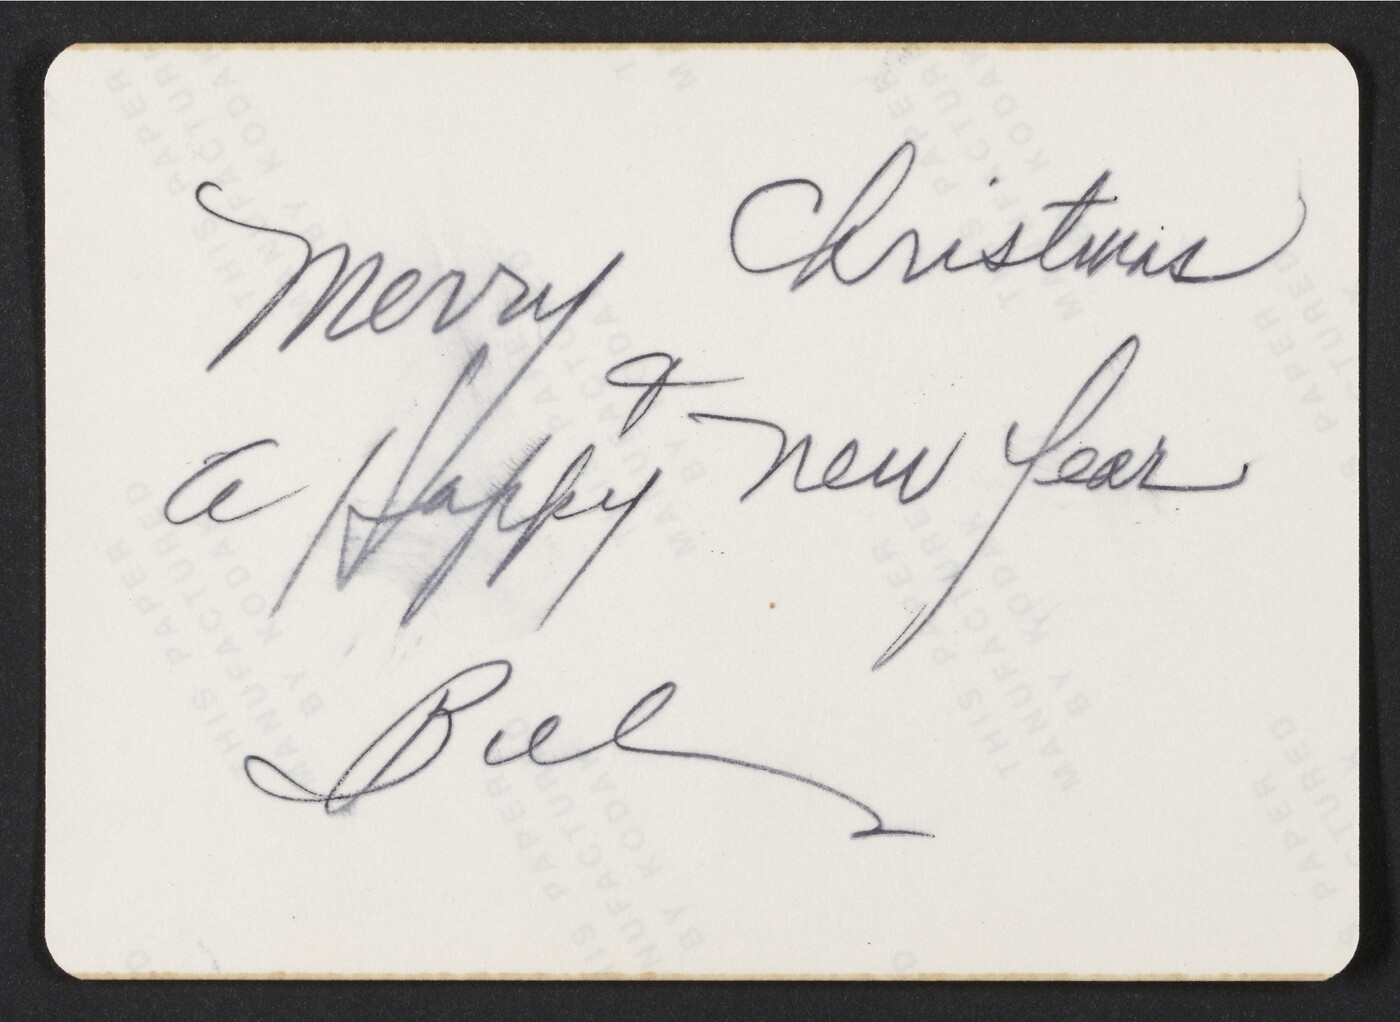 Merry Christmas
&
a Happy New Year
Bill
THIS PAPER
MANUFACTURED
BY KODAK